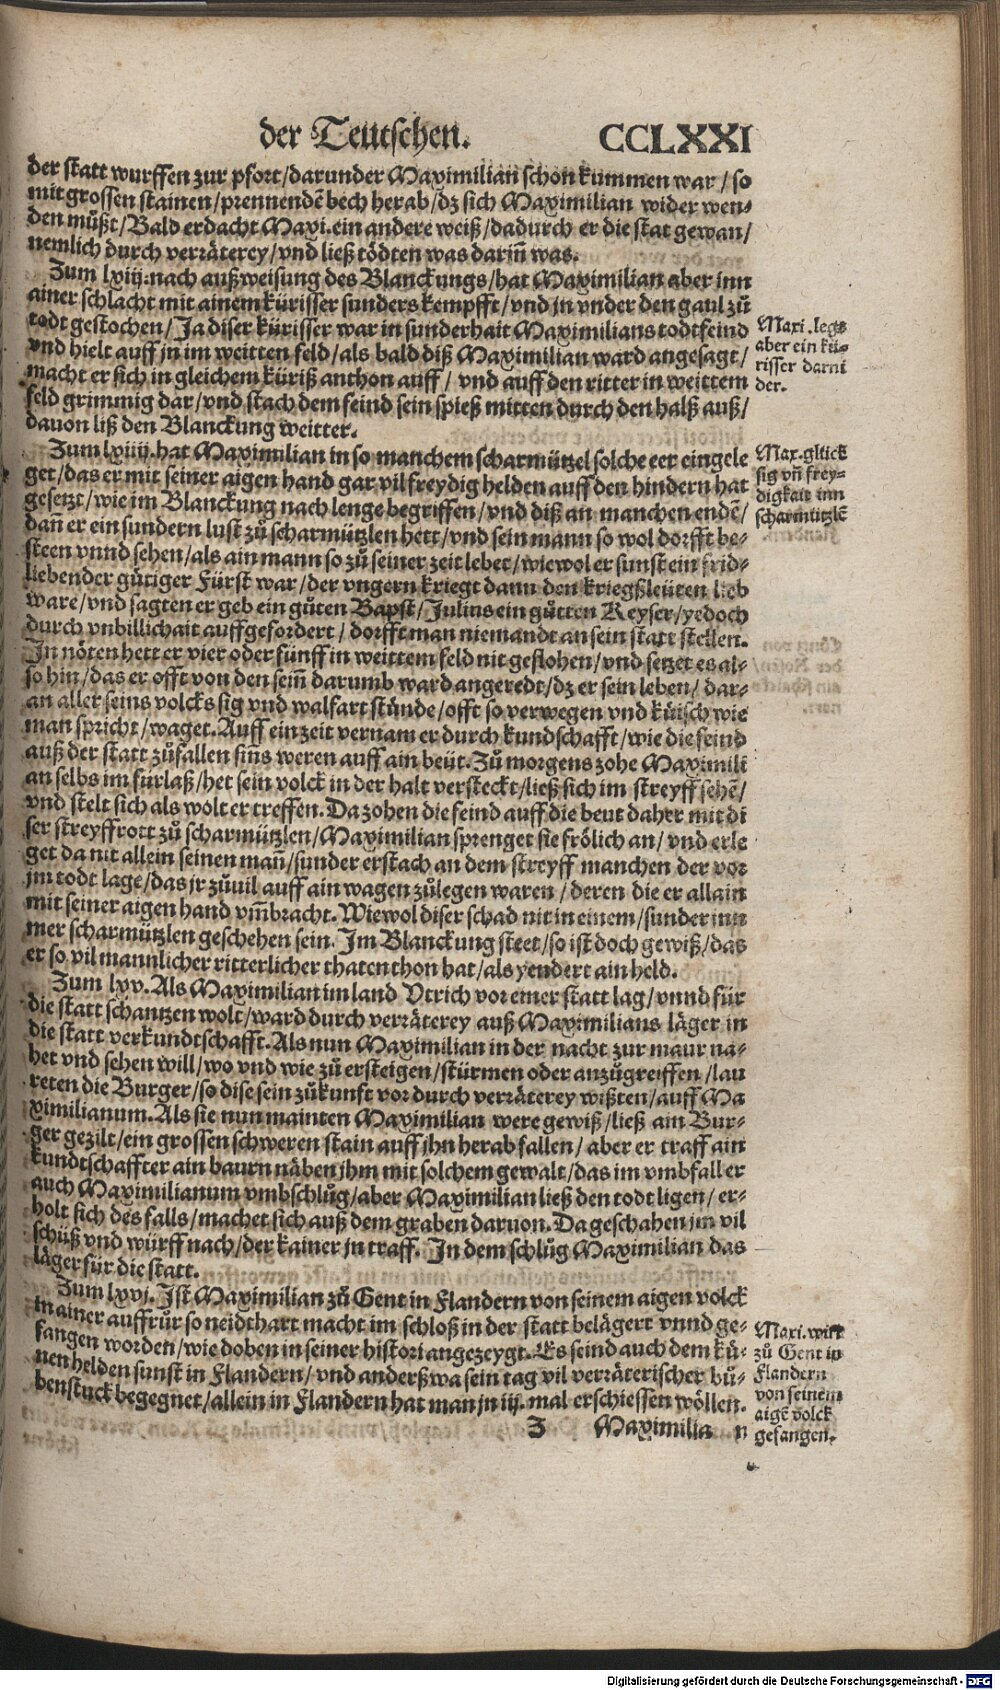 der Teutschen. CCLXXI
der statt wurffen zur pfort/darunder Maximilian schon kummen war/so
mit grossen stainen/prennendē bech herab/dz sich Maximilian wider wen-
den mǔßt/Bald erdacht Maxi.ein andere weiß/dadurch er die stat gewan/
nemlich durch verräterey/vnd ließ tödten was dariñ was.
Zum lxiij.nach außweisung des Blanckungs/hat Maximilian aber inn
ainer schlacht mit ainem kürisser sunders kempfft/vnd jn vnder den gaul zů
todt gestochen/Ja diser kürisser war in sunderhait Maximilians todtfeind
vnd hielt auff jn im weitten feld/als bald diß Maximilian ward angesagt/
macht er sich in gleichem küriß anthon auff/ vnd auff den ritter in weittem
feld grimmig dar/vnd stach dem feind sein spieß mitten durch den halß auß/
dauon liß den Blanckung weitter.
Maxi.legt
aber ein kü-
risser darni
der.
Zum lxiiij.hat Maximilian in so manchem scharmützel solche eer eingele
get/das er mit seiner aigen hand gar vil freydig helden auff den hindern hat
gesetzt/wie im Blanckung nach lenge begriffen/vnd diß an manchen endē/
dañ er ein sundern lust zů scharmützlen hett/vnd sein mann so wol dorfft be-
steen vnnd sehen/als ain mann so zů seiner zeit lebet/wiewol er sunst ein frid-
liebender gůtiger Fürst war/der vngern kriegt dann den kriegßleüten lieb
ware/vnd sagten er geb ein gůten Bapst/Julius ein gůtten Keyser/yedoch
durch vnbillichait auffgefordert/ dorfft man niemandt an sein statt stellen.
In nöten hett er vier oder fünff in weittem feld nit geflohen/vnd setzet es al-
so hin/das er offt von den seiñ darumb ward angeredt/dz er sein leben/ dar-
an aller seins volcks sig vnd walfart stůnde/offt so verwegen vnd küisch wie
man spricht/waget.Auff ein zeit vernam er durch kundschafft/wie die feind
auß der statt zůfallen siñs weren auff ain beüt.Zů morgens zohe Maximili
an selbs im fürlaß/het sein volck in der halt versteckt/ließ sich im streyff sehē/
vnd stelt sich als wolt er treffen.Da zohen die feind auff die beut daher mit di
ser streyffrott zů scharmützlen/Maximilian sprenget sie frölich an/vnd erle
get da nit allein seinen mañ/sunder erstach an dem streyff manchen der vor
jm todt lage/das jr zůuil auff ain wagen zůlegen waren/deren die er allain
mit seiner aigen hand vm̄bracht.Wiewol diser schad nit in einem/sunder inn
mer scharmützlen geschehen sein. Im Blanckung steet/so ist doch gewiß/das
er so vil mannlicher ritterlicher thaten thon hat/als yendert ain held.
Max.glück
sig vñ frey-
digkait inn
scharmützlē
Zum lxv. Als Maximilian im land Vtrich vor einer statt lag/vnnd für
die statt schantzen wolt/ward durch verräterey auß Maximilians läger in
die statt verkundtschafft.Als nun Maximilian in der nacht zur maur na-
het vnd sehen will/wo vnd wie zů ersteigen/stürmen oder anzůgreiffen/lau
reten die Burger/so dise sein zůkunft vor durch verräterey wißten/auff Ma
ximilianum.Als sie nun mainten Maximilian were gewiß/ließ ain Bur-
ger gezilt/ein grossen schweren stain auff jhn herab fallen/aber er traff ain
kundtschaffter ain baurn näben jhm mit solchem gewalt/das im vmbfall er
auch Maximilianum vmbschlůg/aber Maximilian ließ den todt ligen/er-
holt sich des falls/machet sich auß dem graben daruon. Da geschahen jm vil
schüß vnd würff nach/der kainer jn traff. In dem schlůg Maximilian das
läger für die statt.
Zum lxvj. Ist Maximilian zů Gent in Flandern von seinem aigen volck
in ainer auffrůr so neidthart macht im schloß in der statt belägert vnnd ge-
fangen worden/wie doben in seiner histori angezeygt. Es seind auch dem kü-
nen helden sunst in Flandern/vnd anderßwa sein tag vil verräterischer bů-
benstuck begegnet/allein in Flandern hat man jn iij. mal erschiessen wöllen.
Maxi.wirt
zů Gent in
Flandern
von seinem
aigē volck
gefangen.
3 Maximilia n
Digitalisierung gefördert durch die Deutsche Forschungsgemeinschaft - DFG